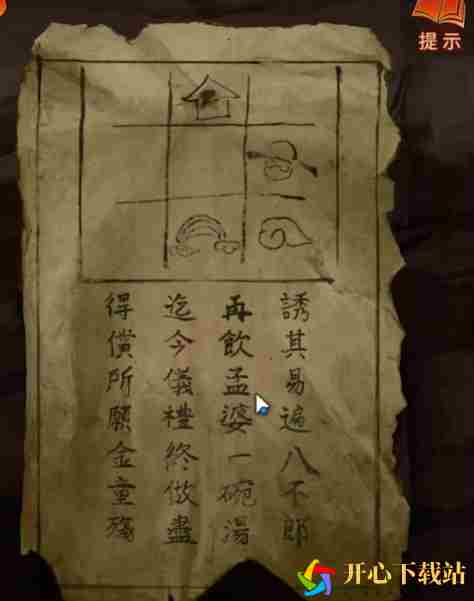 提示
誘其易遍八不郎
再飲孟婆一碗湯
迄今儀禮終做盡
得償所願金童殘
开心下载站